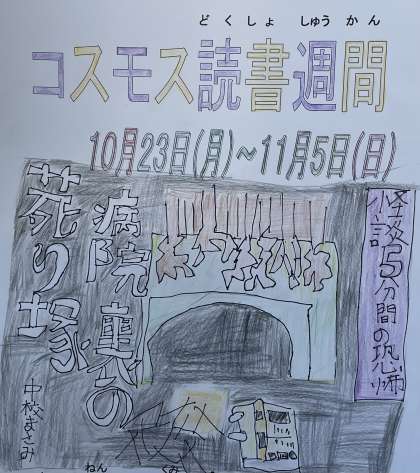 どくしょ しゅう かん
コスモス読書週間
10月23日(月)~11月5日(日)
怪談5分間の恐怖
病院裏の
葬り塚
中校まさみ
ねん くみ